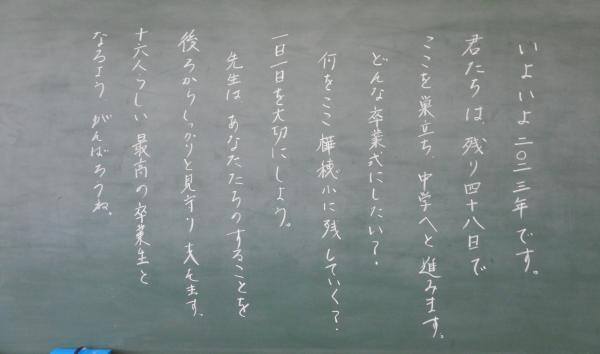 いよいよ二〇二三年です。
君たちは、残り四十八日で
ここを巣立ち、中学へと進みます。
どんな卒業式にしたい？
何をここ樺穂小に残していく？
一日一日を大切にしよう。
先生は、あなたたちのすることを
後ろからしっかりと見守り支えます。
十六人らしい最高の卒業生と
なるよう がんばろうね。